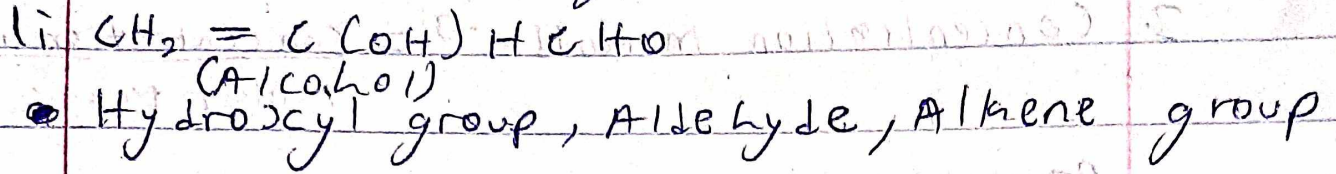 li CH₂ = C(OH)HCHO
(Alcohol)
Hydroxyl group, Aldehyde, Alkene group